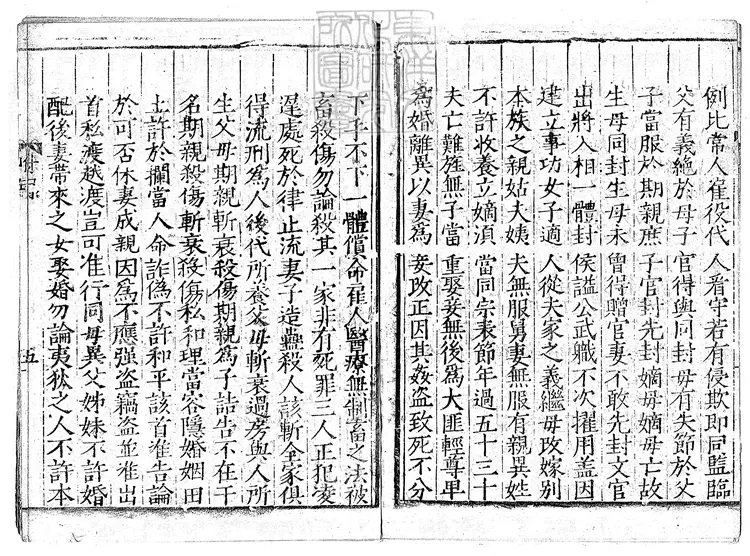 例比常人雇役代人看守若有侵欺即同監臨
父有義絶於母子官得與同封母有失節於父
子當服於期親庶子官封先封嫡母嫡母亡故
生母同封生母未曾得贈官妻不敢先封文官
出將入相一體封侯謚公武職不次擢用盖因
建立事功女子適人從夫家之義繼母改嫁別
本族之親姑夫姨夫無服舅妻無服有親異姓
不許收養立嫡湏當同宗秉節年過五十三十
夫亡難旌無子當重娶妾無後爲大匪輕尊卑
爲婚離異以妻爲妾改正因其姦盗致死不分
下手不下一體償命雇人醫療無制畜之法被
畜殺傷勿論殺其一家非有死罪三人正犯凌
遲處死於律止流妻子造蠱殺人該斬全家俱
得流刑爲人後代所養父母斬衰過房與人所
生父母期親斬衰殺傷期親爲子詰告不在干
名期親殺傷斬衰殺傷私和理當容隱婚姻田
土許於攔當人命詐僞不許和平該首推告論
於可否休妻成親因爲不應强盗竊盗並推出
首私渡越渡豈可准行同母異父姊妹不許婚
配後妻帶來之女娶婚勿論夷狄之人不許本
五